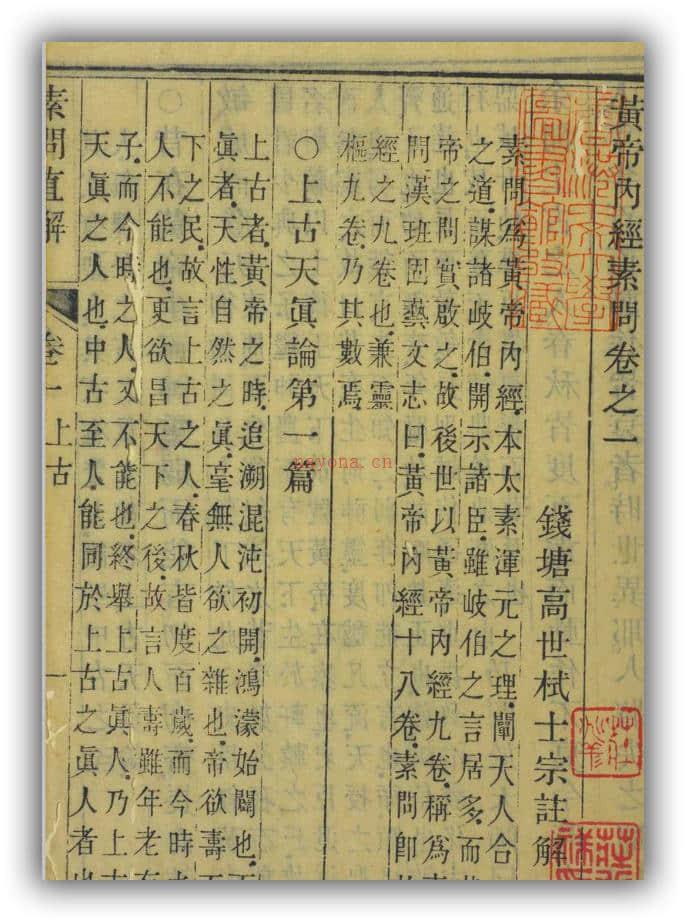 黃帝內經素問卷之一
錢塘高世栻士宗註解
素問爲黃帝內經.本太素渾元之理.闡天人合
之道.謀諸岐伯.開示諸臣.雖岐伯之言居多.而
帝之問.實啟之.故後世以黃帝內經九卷.稱爲
問.漢班固藝文志曰.黃帝內經十八卷.素問卽
經之九卷也.兼靈
樞九卷.乃其數焉
○上古天眞論第一篇
上古者.黃帝之時.追溯混沌初開.鴻濛始闢也.
眞者.天性自然之眞.毫無人欲之雜也.帝欲壽
下之民.故言上古之人.春秋皆度百歲.而今時
人不能也.更欲昌天下之後.故言人壽雖年老有
子.而今時之人.又不能也.終舉上古眞人.乃上
天眞之人也.中古至人.能同於上古之眞人者
素問直解 卷一 上古 一
nayona.cn